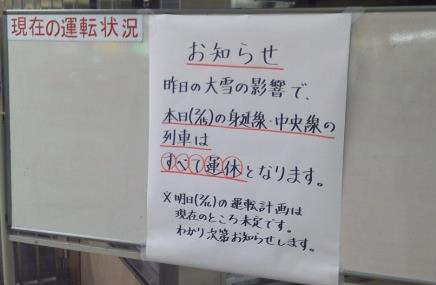 現在の運転状況
お知らせ
昨日の大雪の影響で、
本日(2/15)の身延線・中央線の
列車は
すべて運休となります。
※明日(2/16)の運転計画は
現在のところ未定です。
わかり次第お知らせします。